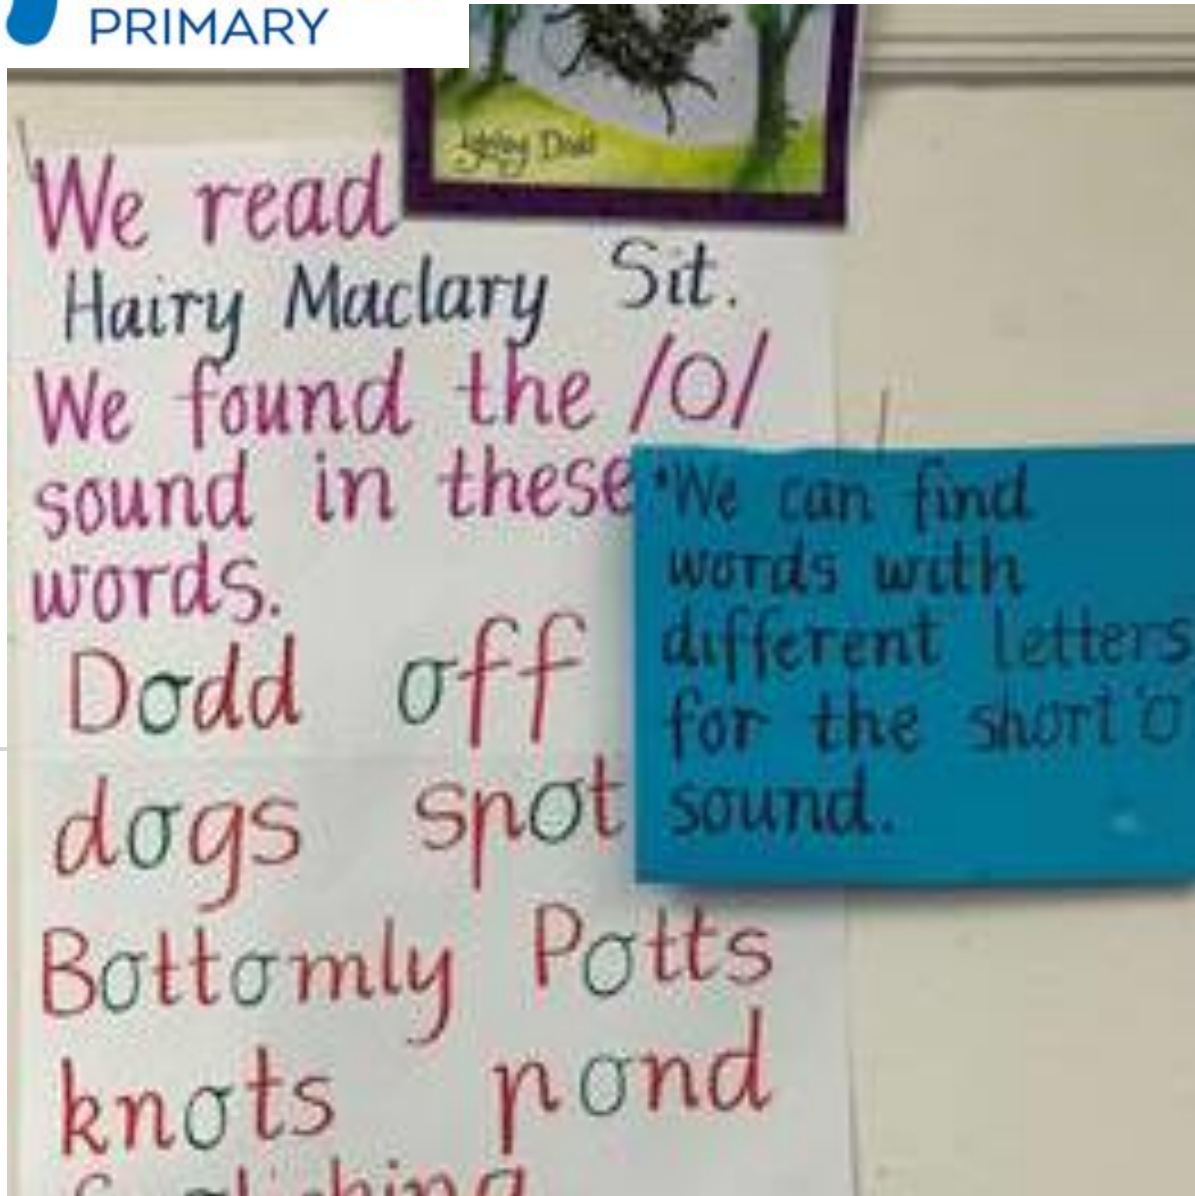 PRIMARY
Lynley Dodd
We read
Hairy Maclary Sit.
We found the /o/
sound in these
words.
Dodd off
dogs spot
Bottomly Potts
knots pond
•We can find
words with
different letters
for the short 'o'
sound.